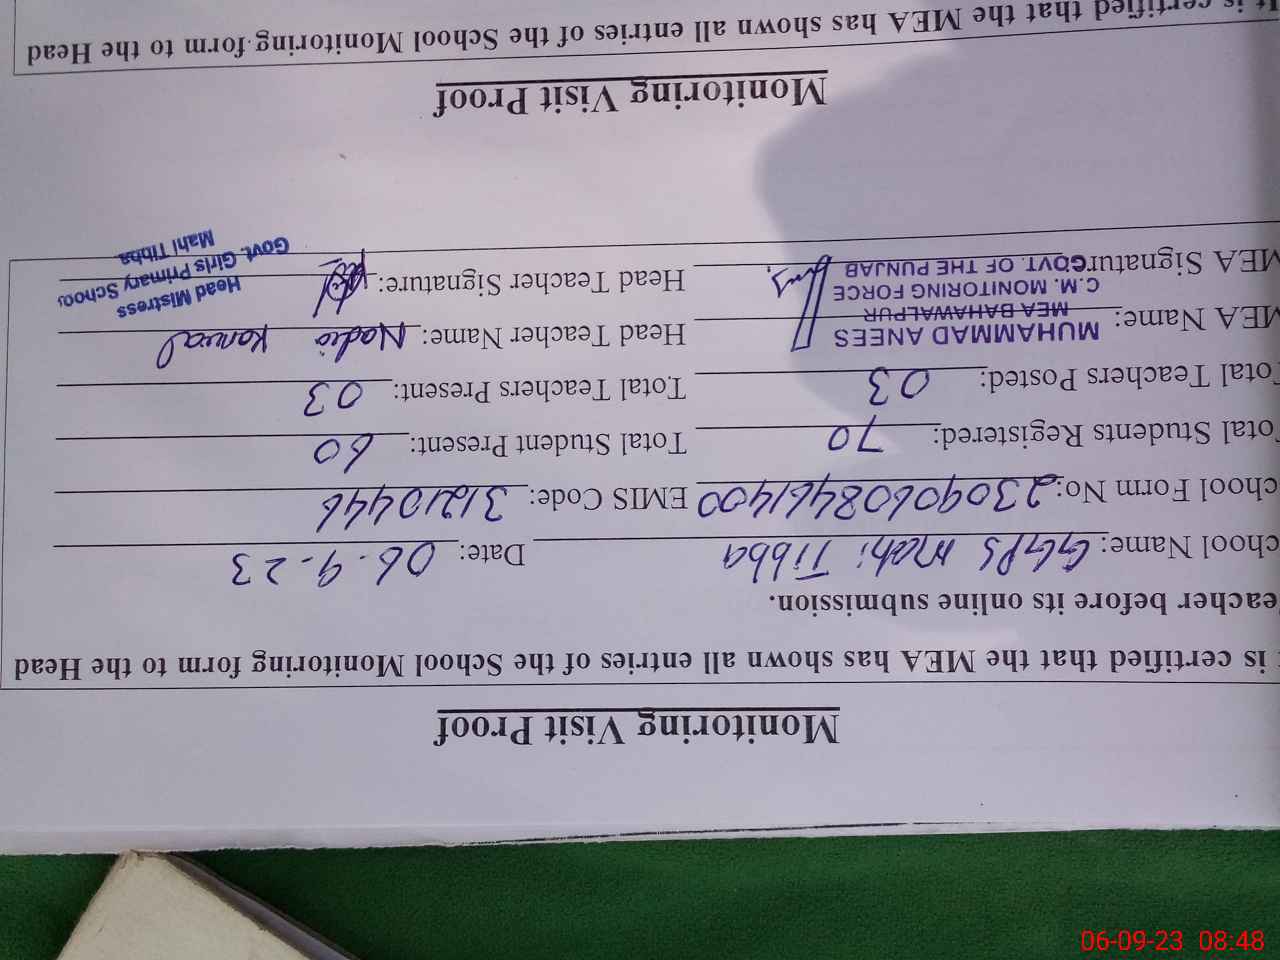 Monitoring Visit Proof
It is certified that the MEA has shown all entries of the School Monitoring form to the Head
Teacher before its online submission.
School Name: GGPS Mahi Tibba Date: 06.9.23
School Form No: 23090608461400 EMIS Code: 31210446
Total Students Registered: 70 Total Student Present: 60
Total Teachers Posted: 03 Total Teachers Present: 03
MEA Name: MUHAMMAD ANEES Head Teacher Name: Nadia Kanwal
MEA BAHAWALPUR
C.M. MONITORING FORCE
MEA Signature: GOVT. OF THE PUNJAB Head Teacher Signature:
Head Mistress
Govt. Girls Primary School
Mahi Tibba
Monitoring Visit Proof
It is certified that the MEA has shown all entries of the School Monitoring form to the Head
06-09-23 08:48